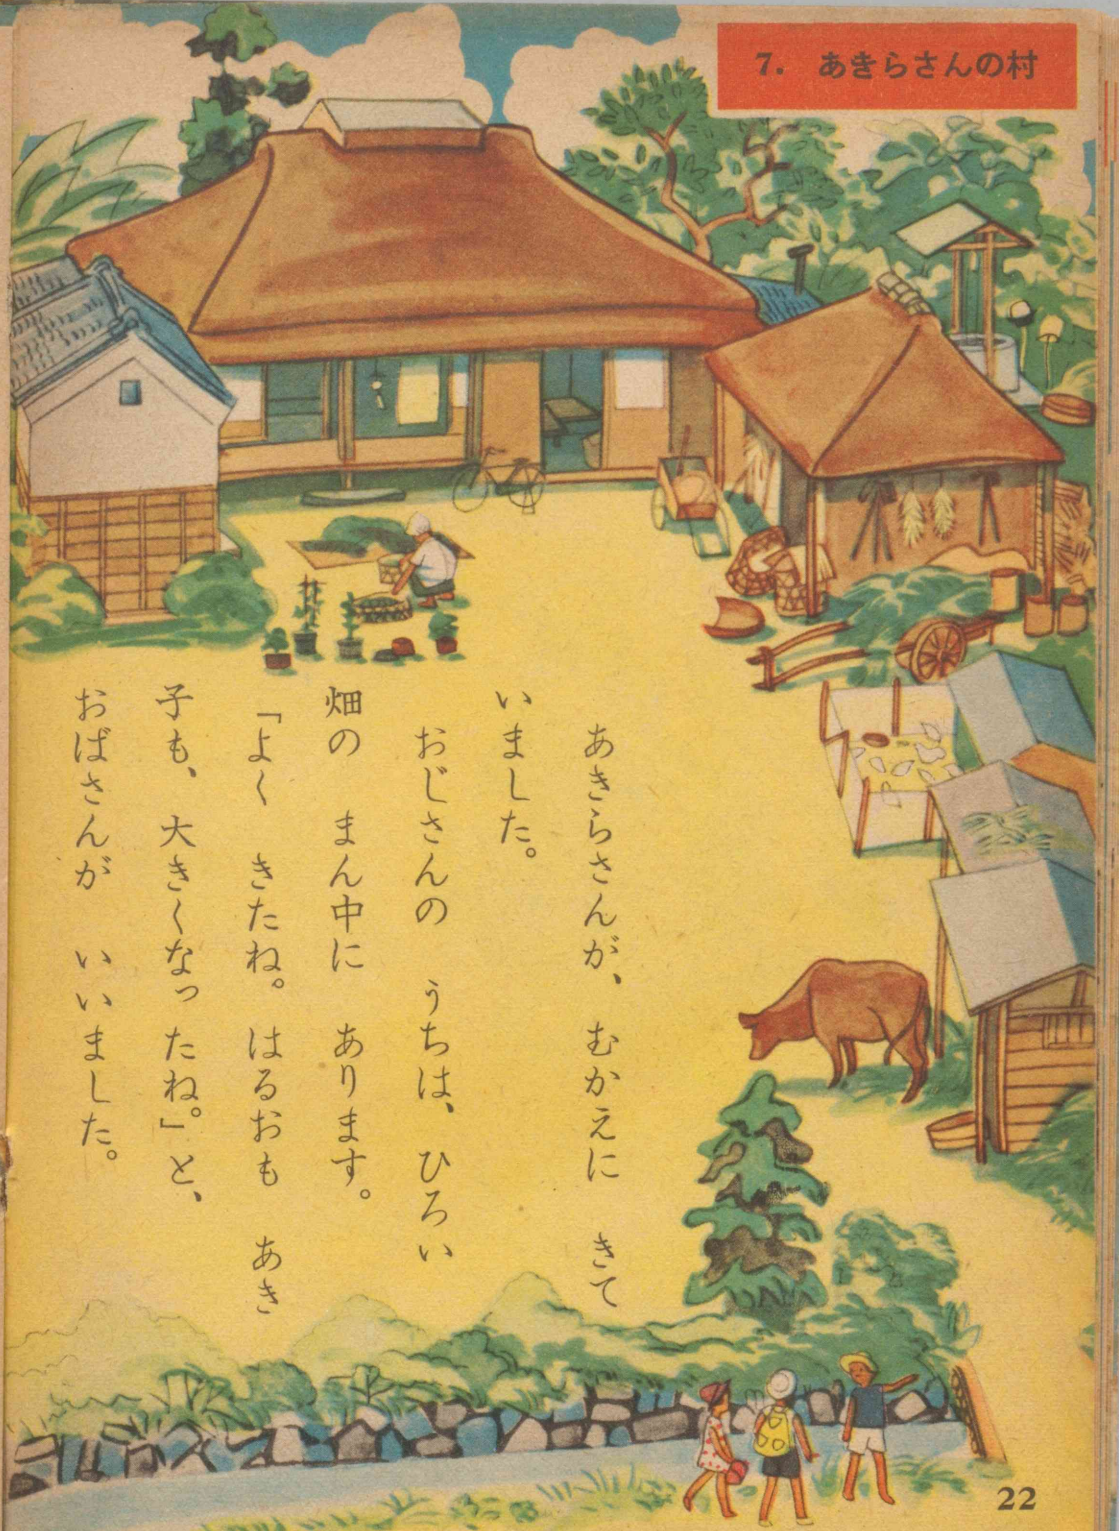 7. あきらさんの村
あきらさんが、 むかえに きて
いました。
おじさんの うちは、ひろい
畑の まん中に あります。
「よく きたね。はるおも あき
子も、大きくなったね。」と、
おばさんが いいました。
22